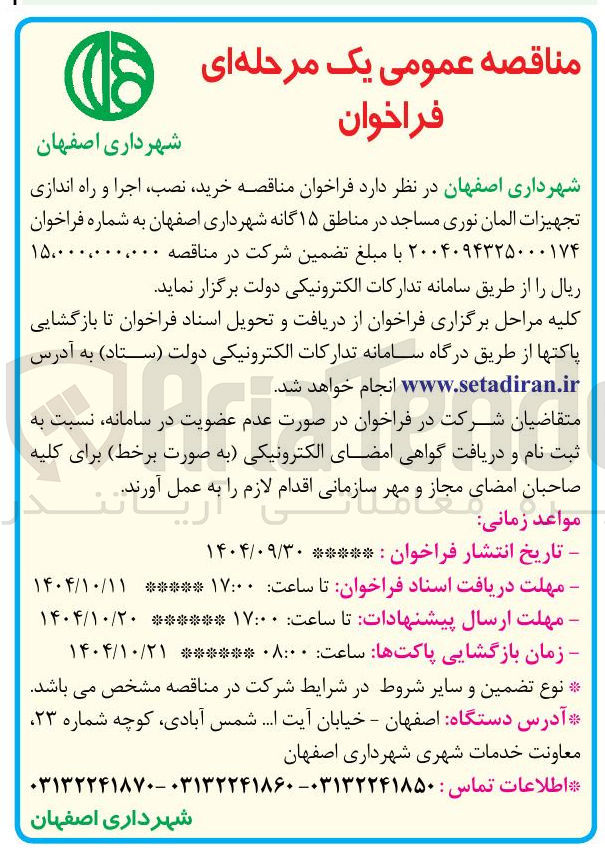 مناقصه عمومی یک مرحله‌ای
فراخوان
شهرداری اصفهان
شهرداری اصفهان در نظر دارد فراخوان مناقصه خرید، نصب، اجرا و راه اندازی
تجهیزات المان نوری مساجد در مناطق ۱۵گانه شهرداری اصفهان به شماره فراخوان
۲۰۰۴۰۹۴۳۲۵۰۰۰۱۷۴ با مبلغ تضمین شرکت در مناقصه ۱۵,۰۰۰,۰۰۰,۰۰۰
ریال را از طریق سامانه تدارکات الکترونیکی دولت برگزار نماید.
کلیه مراحل برگزاری فراخوان از دریافت و تحویل اسناد فراخوان تا بازگشایی
پاکتها از طریق درگاه سامانه تدارکات الکترونیکی دولت (ستاد) به آدرس
www.setadiran.ir انجام خواهد شد.
متقاضیان شرکت در فراخوان در صورت عدم عضویت در سامانه، نسبت به
ثبت نام و دریافت گواهی امضای الکترونیکی (به صورت برخط) برای کلیه
صاحبان امضای مجاز و مهر سازمانی اقدام لازم را به عمل آورند.
مواعد زمانی:
- تاریخ انتشار فراخوان : ***** ۱۴۰۴/۰۹/۳۰
- مهلت دریافت اسناد فراخوان: تا ساعت: ۱۷:۰۰ ***** ۱۴۰۴/۱۰/۱۱
- مهلت ارسال پیشنهادات: تا ساعت: ۱۷:۰۰ ****** ۱۴۰۴/۱۰/۲۰
- زمان بازگشایی پاکت‌ها: ساعت: ۰۸:۰۰ ****** ۱۴۰۴/۱۰/۲۱
* نوع تضمین و سایر شروط در شرایط شرکت در مناقصه مشخص می باشد.
*آدرس دستگاه: اصفهان - خیابان آیت ا... شمس آبادی، کوچه شماره ۲۳،
معاونت خدمات شهری شهرداری اصفهان
*اطلاعات تماس : ۰۳۱۳۲۲۴۱۸۵۰- ۰۳۱۳۲۲۴۱۸۶۰ -۰۳۱۳۲۲۴۱۸۷۰
شهرداری اصفهان
AriaTende